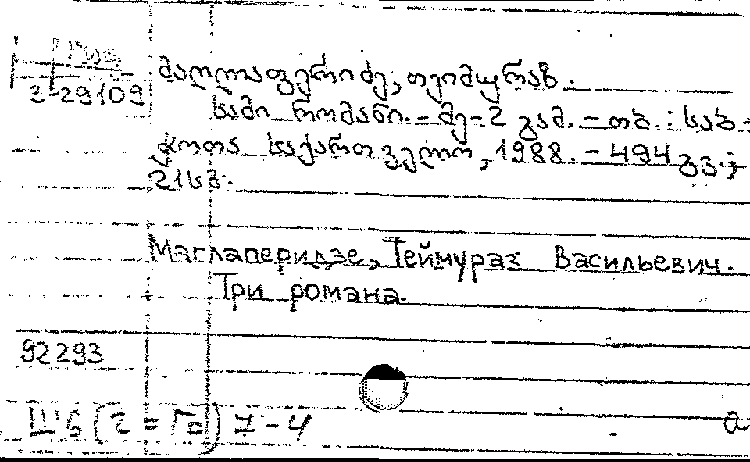 2-29109
მაღლაფერიძე, თეიმურაზ.
სამი რომანი. - მე-2 გამ. - თბ. : საბ-
ჭოთა საქართველო, 1988. - 494 გვ.;
21სმ.
Маглаперидзе, Теймураз Васильевич.
Три романа.
92293